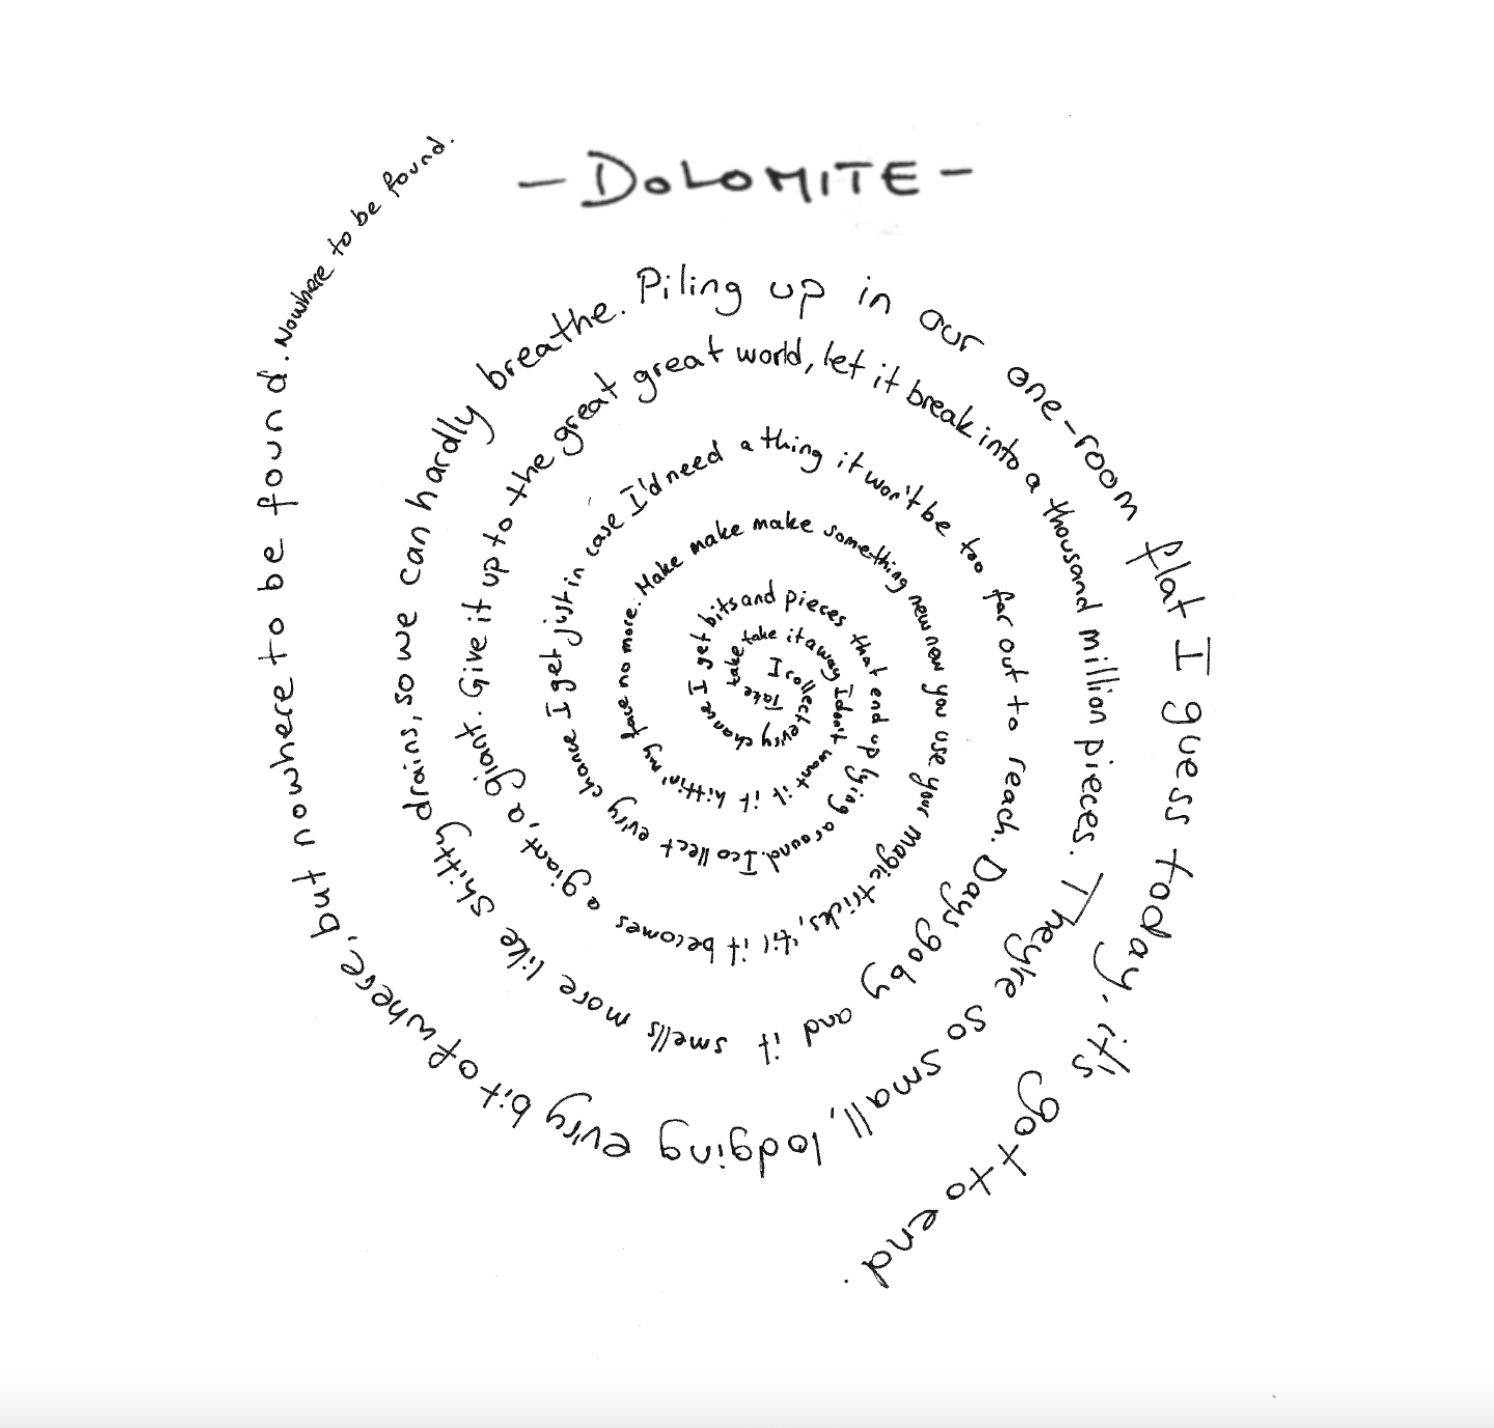 - DOLOMITE -
I collect ev'ry chance I get bits and pieces that end up lying around. I collect ev'ry chance I get just in case I'd need a thing it won't be too far out to reach. Days go by and it smells more like shitty drains, so we can hardly breathe. Piling up in our one-room flat I guess today, it's got to end.
Take take take it away I don't want it it hittin' my face no more. Make make make something new now you use your magic tricks, 'til it becomes a giant, a giant. Give it up to the great great world, let it break into a thousand million pieces. They're so small, lodging ev'ry bit of where, but nowhere to be found. Nowhere to be found.